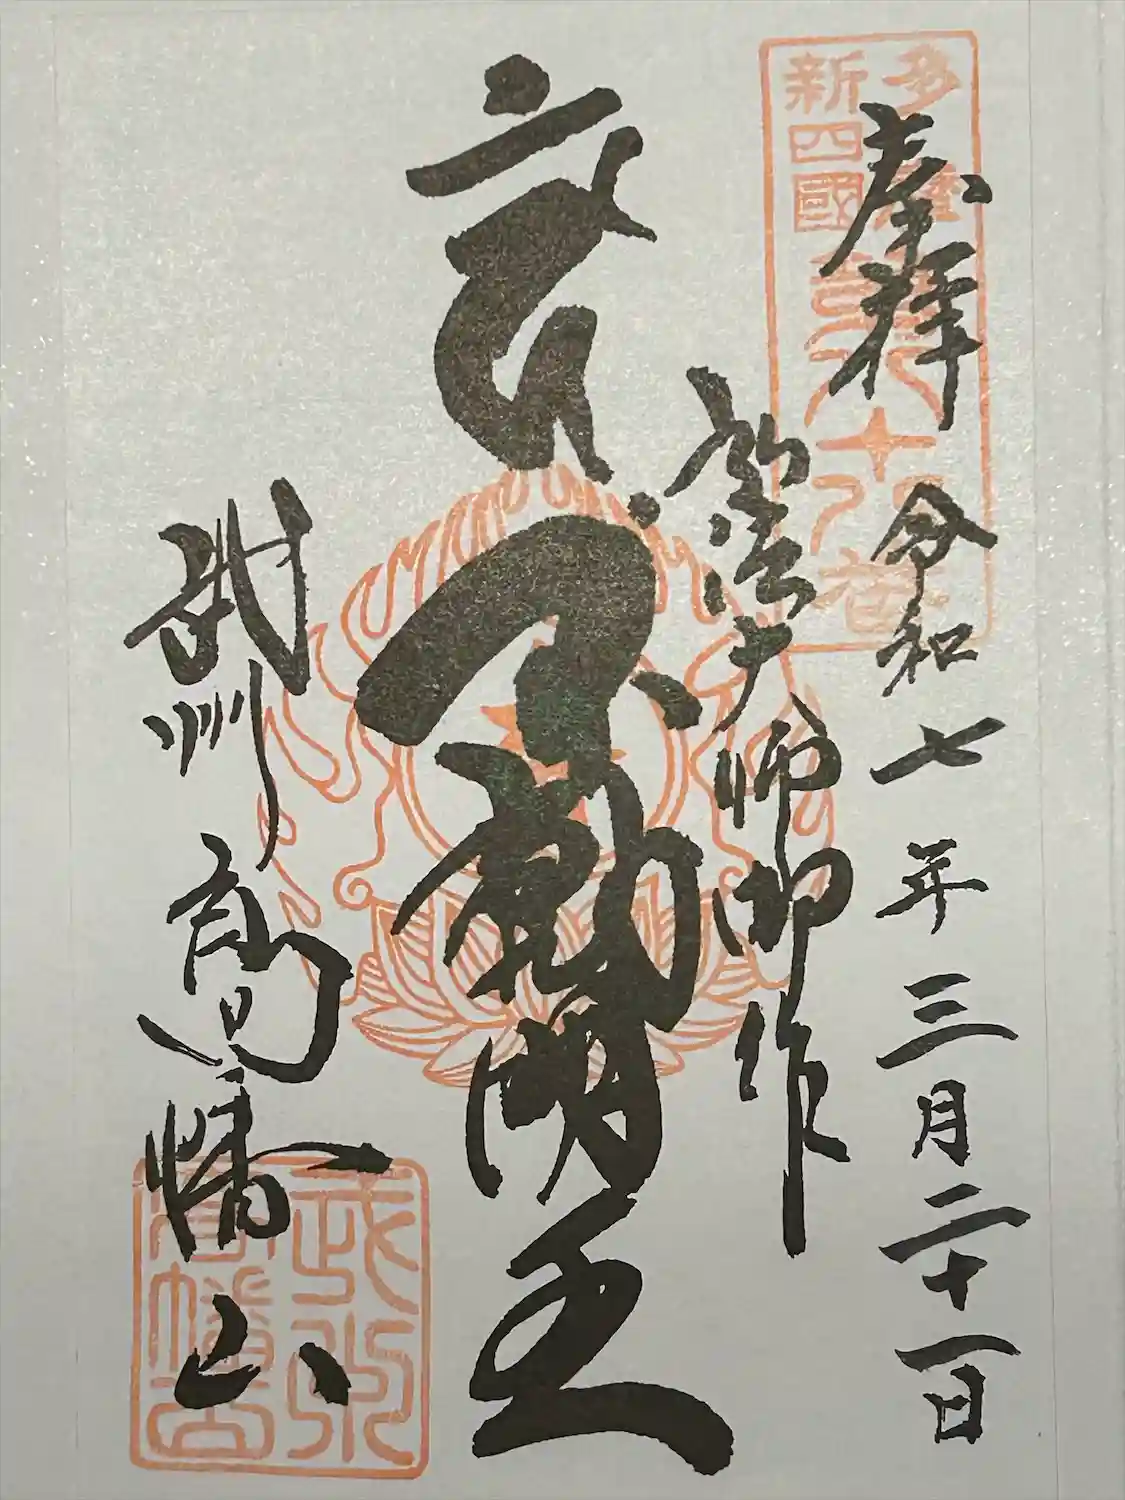 奉拝 令和七年三月二十一日
多摩
新四國
第八十八番
弘法大師御作
不動明王
武州高幡山
武州
高幡山